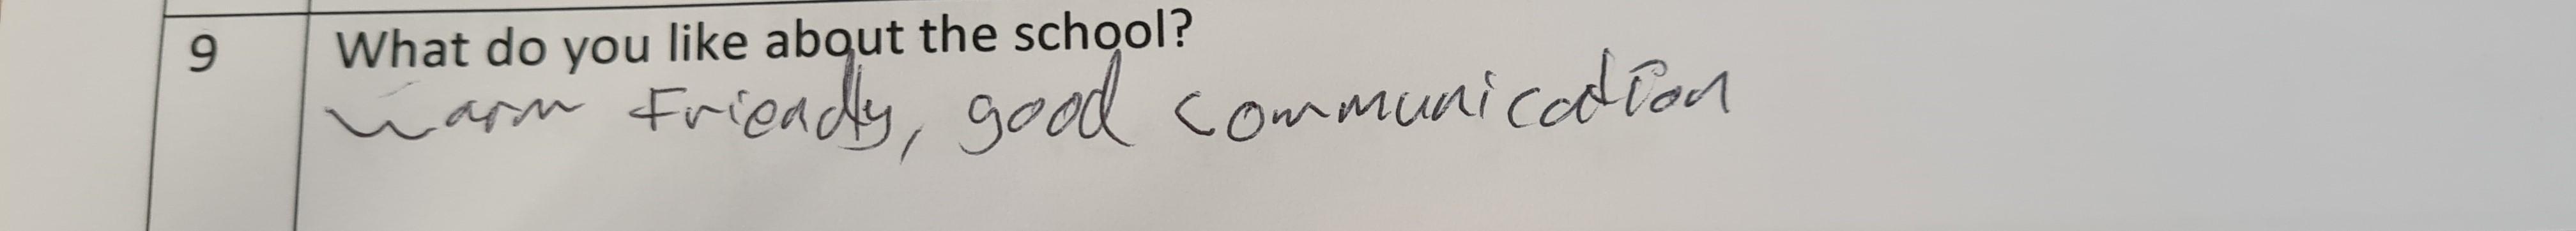 9 What do you like about the school?
Warm Friendly, good communication